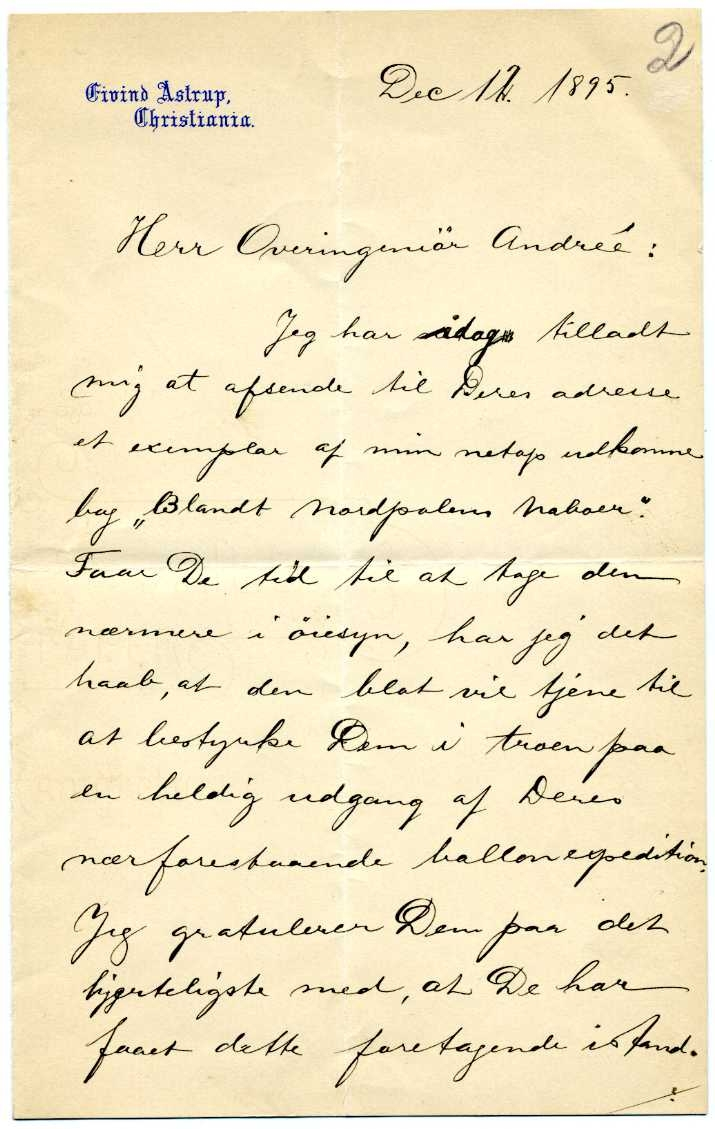 2
Eivind Astrup,
Christiania.
Dec 12. 1895.
Herr Overingeniör Andreé:
Jeg har idag tilladt
mig at afsende til Deres adresse
et exemplar af min netop udkomne
bog „Blandt Nordpolens Naboer“.
Faar De tid til at tage den
nærmere i öiesyn, har jeg det
haab, at den blot vil tjene til
at bestyrke Dem i troen paa
en heldig udgang af Deres
nærforestaaende ballonexpedition.
Jeg gratulerer Dem paa det
hjerteligste med, at De har
faaet dette foretagende istand.